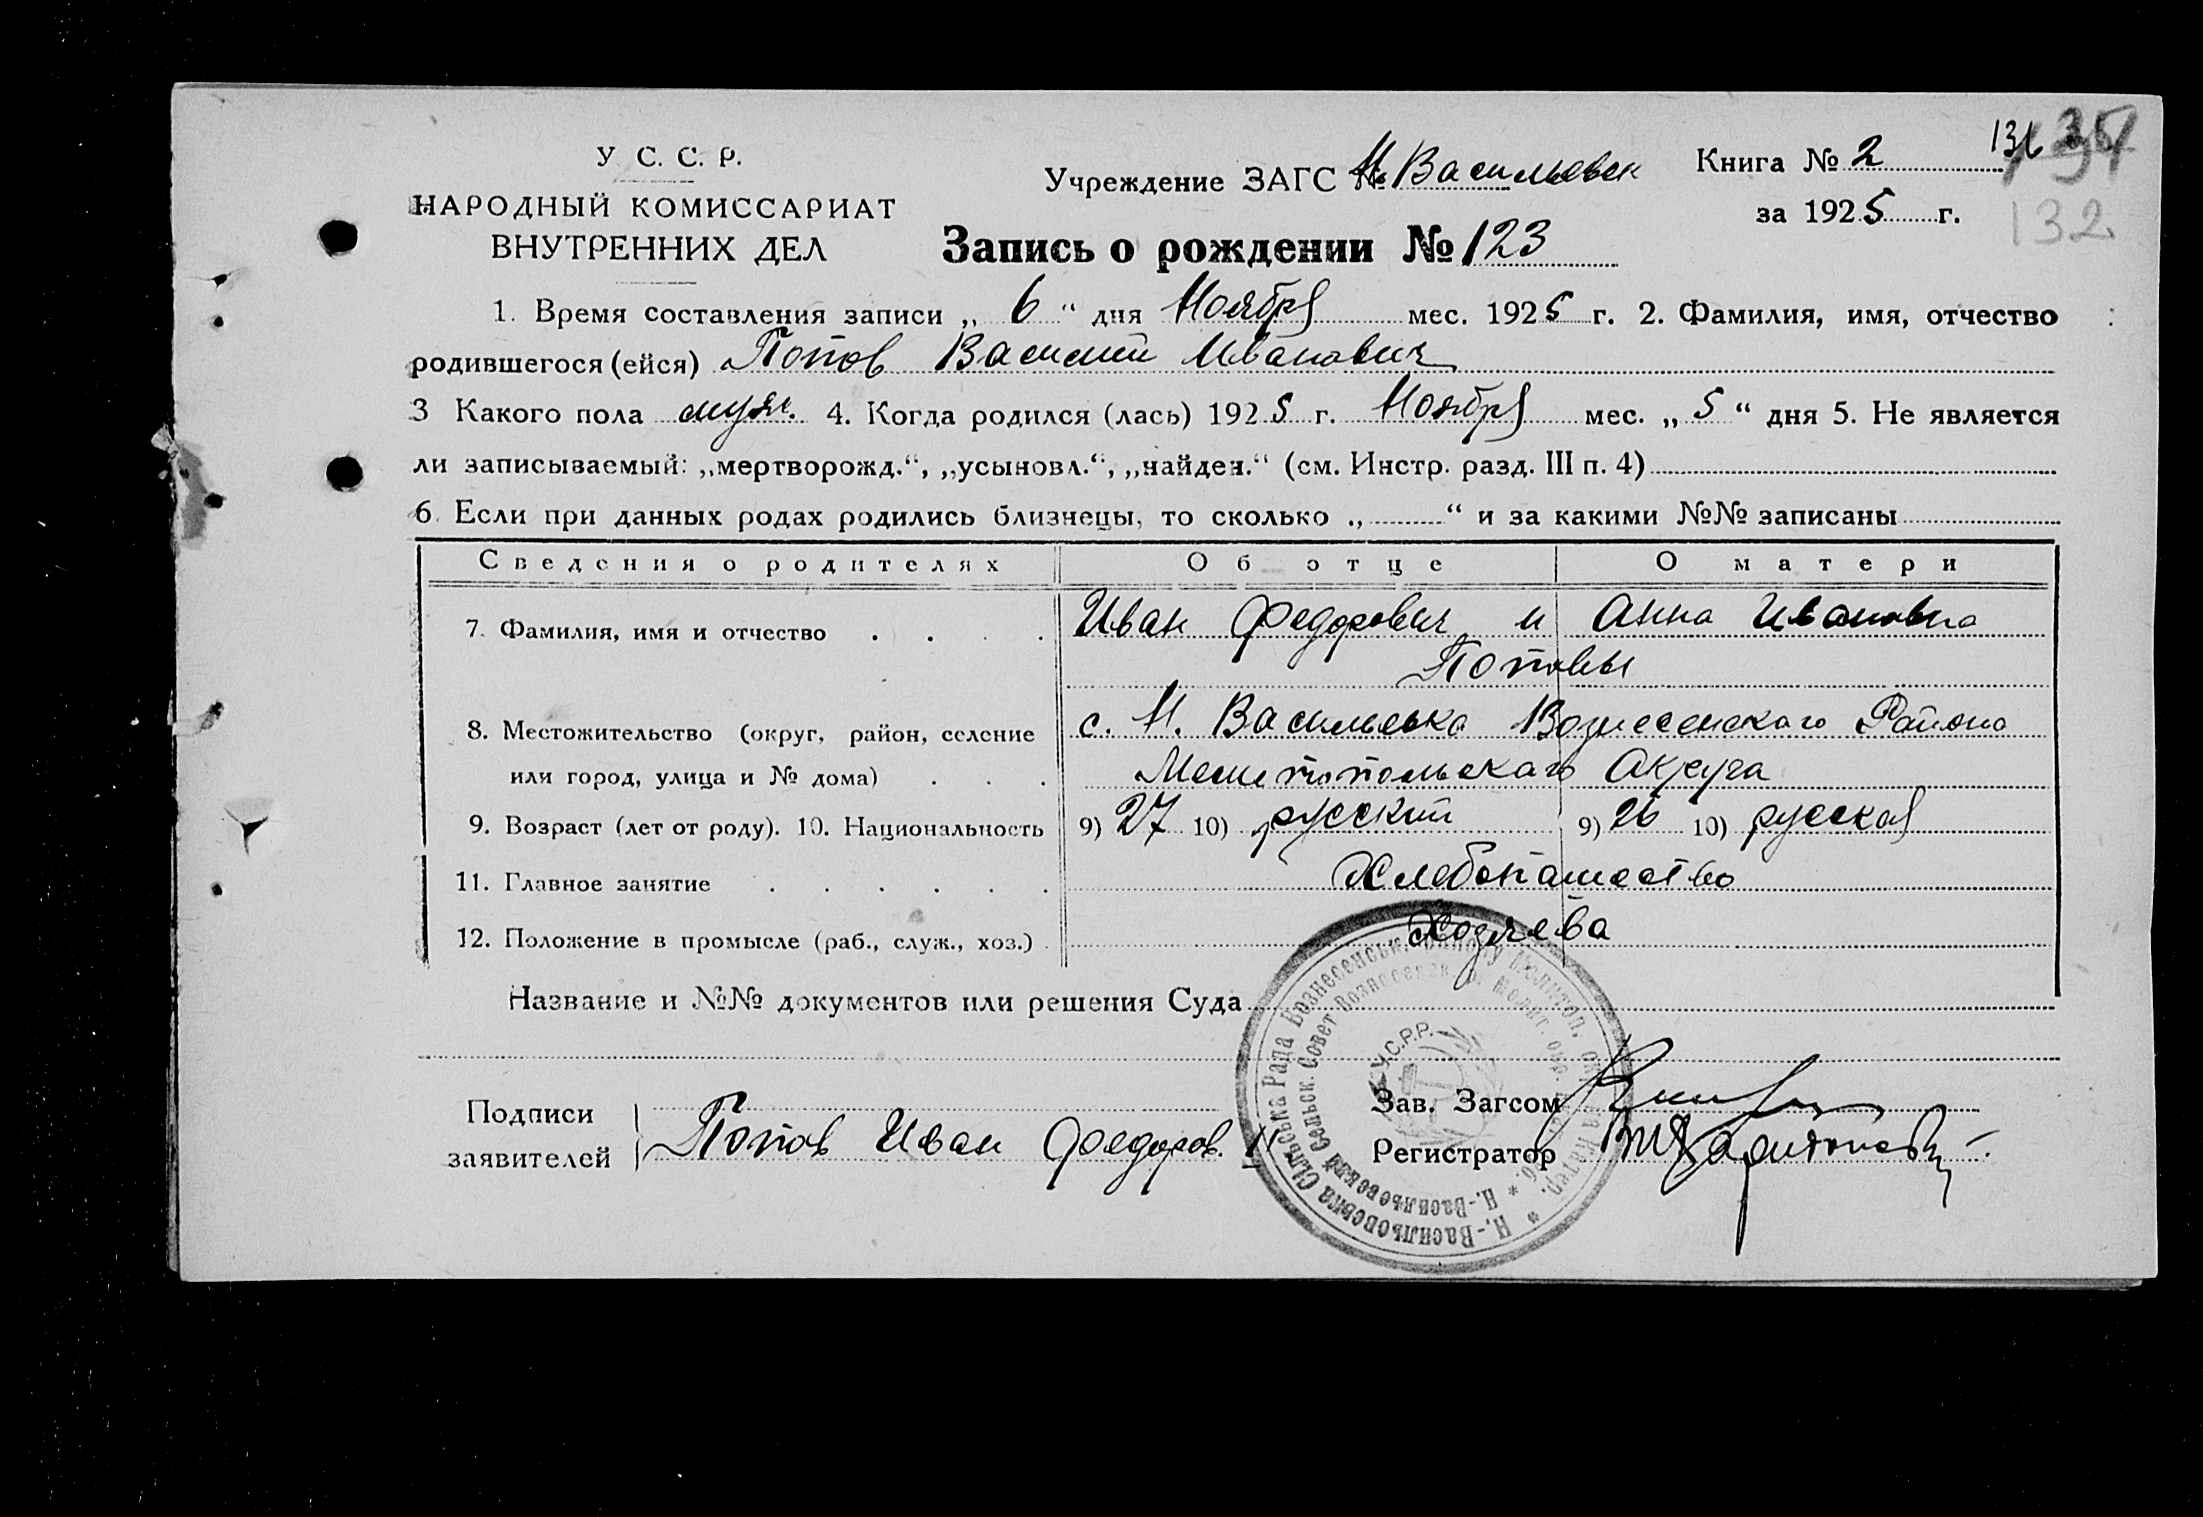 У С. С. Р.
НАРОДНЫЙ КОМИССАРИАТ
ВНУТРЕННИХ ДЕЛ
Учреждение ЗАГС № Н Васильевск
Книга № 2
131
132
за 1925 г.
Запись о рождении № 123
1. Время составления записи „ 6 “ дня Ноября мес. 1925 г. 2. Фамилия, имя, отчество
родившегося (ейся) Попов Василий Иванович
3 Какого пола муж. 4. Когда родился (лась) 1925 г. Ноября мес. „ 5 “ дня 5. Не является
ли записываемый: „мертворожд.“, „усыновл.“, „найден.“ (см. Инстр. разд. III п. 4)
6. Если при данных родах родились близнецы, то сколько „ “ и за какими №№ записаны
Сведения о родителях Об отце О матери
7. Фамилия, имя и отчество Иван Федорович и Анна Ивановна
Поповы
8. Местожительство (округ, район, селение с. Н. Васильевка Вознесенскаго Района
или город, улица и № дома) Мелитопольскаго Округа
9. Возраст (лет от роду). 10. Национальность 9) 27 10) русский 9) 26 10) русская
11. Главное занятие Хлебопашество
12. Положение в промысле (раб., служ., хоз.) Хозяева
Название и №№ документов или решения Суда
Н.-Васильовська Сільська Рада Вознесенськ. Району Мелітоп. окр.
Н.-Васильевский Сельск. Совет Вознесенск. р. Мелит. окр.
У.С.Р.Р.
Подписи
заявителей Попов Иван Федоров. И
Зав. Загсом
Регистратор